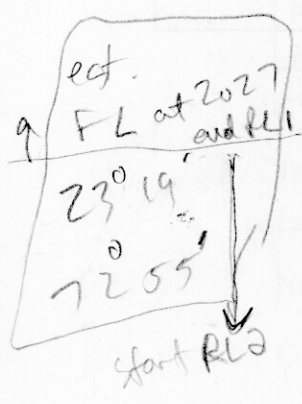 est.
FL at 2027
end RL1
23° 19'
72° 55'
start RL2